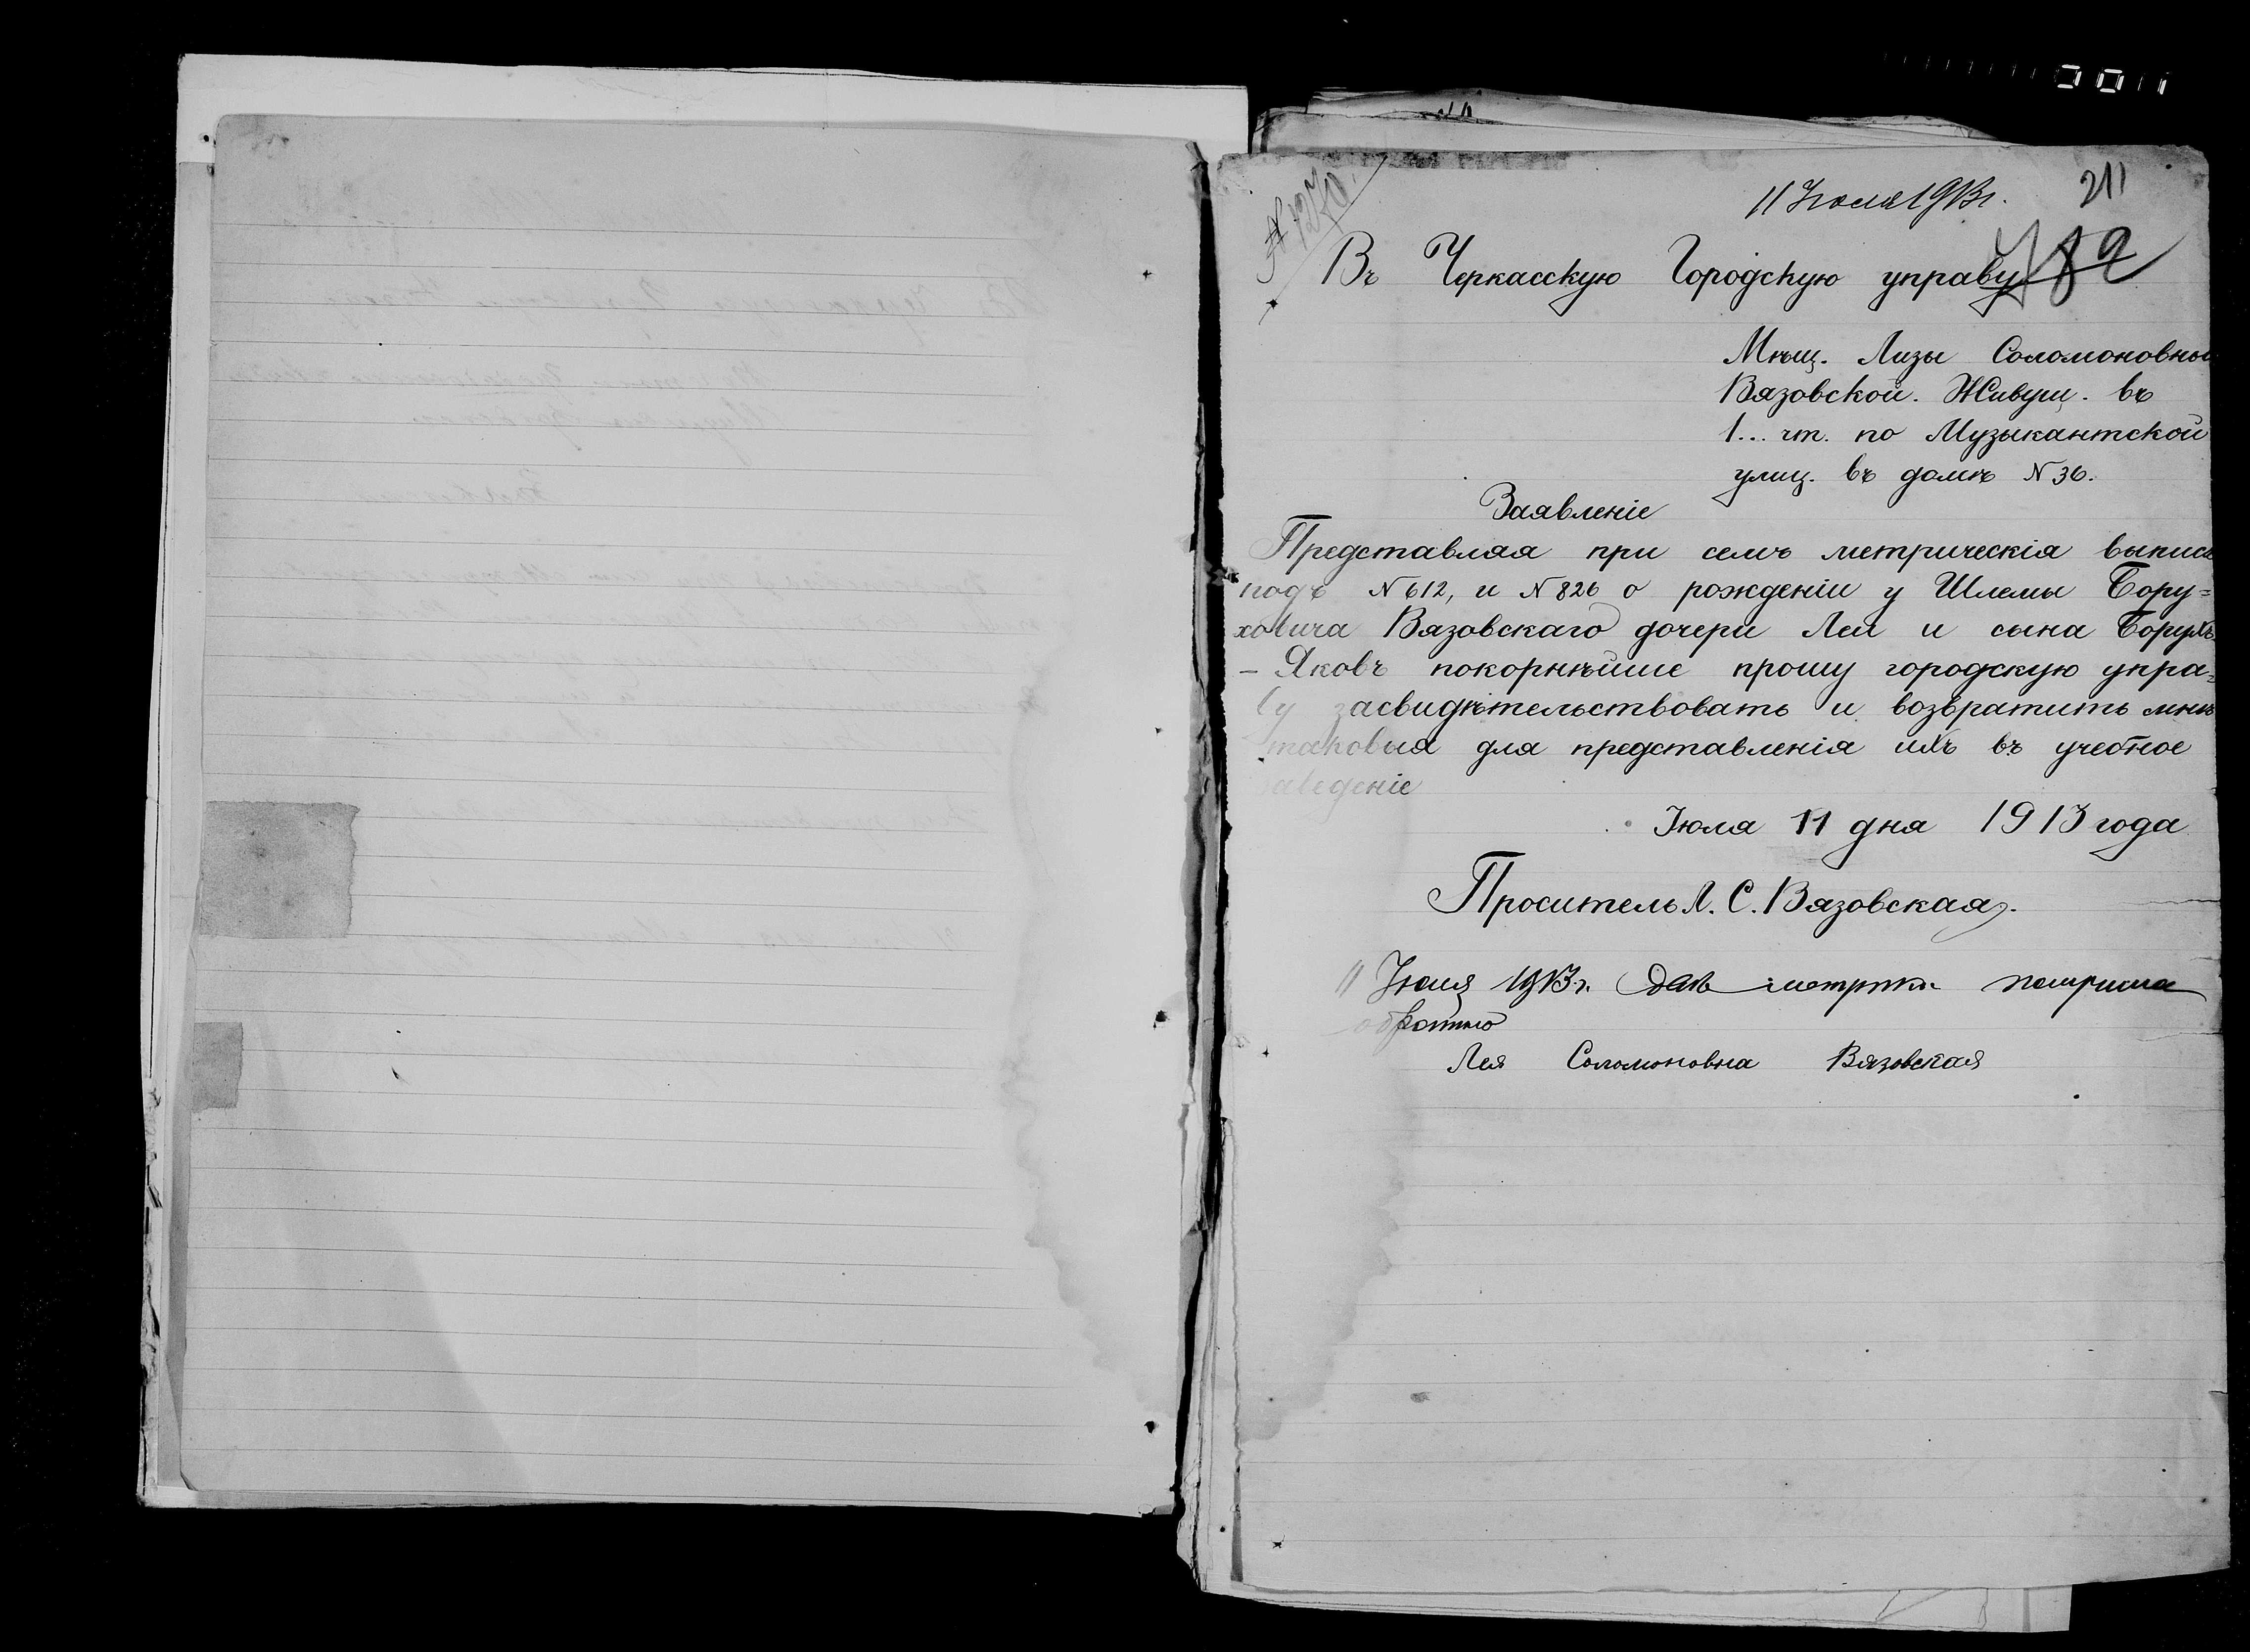 11 Июля 1913 г.
211
№ 1270.
482
Въ Черкасскую Городскую управу
Мѣщ. Лизы Соломоновны
Вязовской. Живущ. въ
1... чт. по Музыкантской
улиц. въ домѣ № 36.
Заявленіе
Представляя при семъ метрическія выписи
подъ № 612, и № 826 о рожденіи у Шлемы Бору=
ховича Вязовскаго дочери Леи и сына Борухъ
- Яковъ покорнѣйше прошу городскую упра=
ву засвидѣтельствовать и возвратить мнѣ
таковыя для представленія ихъ въ учебное
заведеніе
Іюля 11 дня 1913 года
Проситель Л. С. Вязовская.
11 Июля 1913 г. двѣ метрики получила
обратно
Лея Соломоновна Вязовская